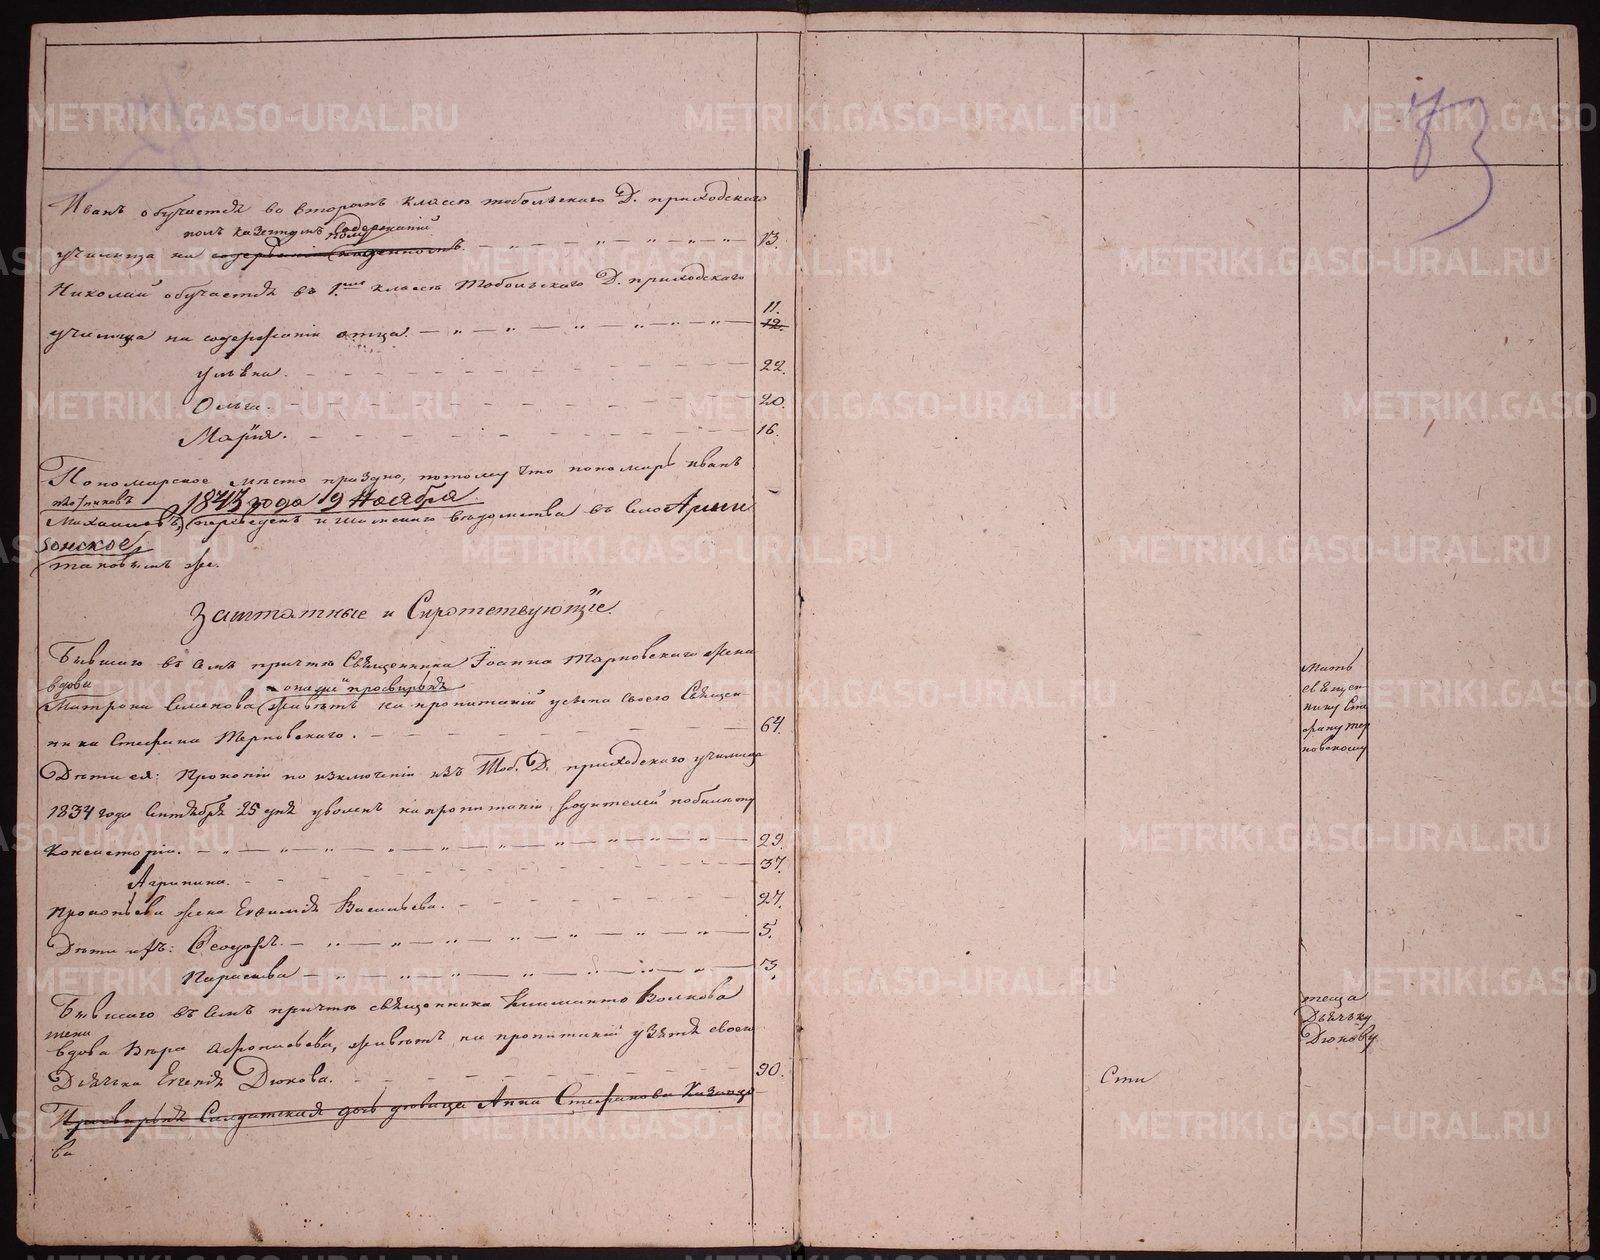 73
Иванъ обучается во второмъ классѣ тобольскаго Д. приходскаго
полъ казеннымъ содержанiи
училища на 13.
Николай обучается въ 1. классѣ Тобольскаго Д. приходскаго
11.
училища на содержанiи отца. 12.
22.
Ольга. 20.
Марiя. 16.
Пономарское мѣсто праздно, потому что пономарь Иванъ
1843 года 19 Ноября
Михаиловъ, переведенъ въ село Арми
зонское
таковымъ же.
Заштатные и Сиротствующiе.
Бывшаго въ семъ причтѣ Священника Iоанна Терновскаго жена
вдова она же просвирня
Матрона Семенова живетъ на пропитанiи у зятя своего Священ-
ника Стефана Терновскаго. 64.
Дѣти ея: Прокопiй по изключенiи изъ Тоб. Д. приходскаго училища
1834 года Сентября 25 дня уволенъ на пропитанiи родителей по билету
Консисторiи. 29.
Агрипина. 37.
Прокопьева жена Евѳимiя Васильева. 27.
Дѣти ихъ: Ѳеодоръ. 5.
Параскева 3.
Бывшаго въ семъ причтѣ священника Климента Волкова
жена
вдова Вѣра живетъ на пропитанiи у зятя своего
Дьячка Евгенiя Дюкова. 90.
Просвирня Салдатская дочь дѣвица Анна Стефанова Казанце
ва
Мать
священ-
нику Сте
фану тер
новскому
теща
Дьячку
Дюкову
METRIKI.GASO-URAL.RU